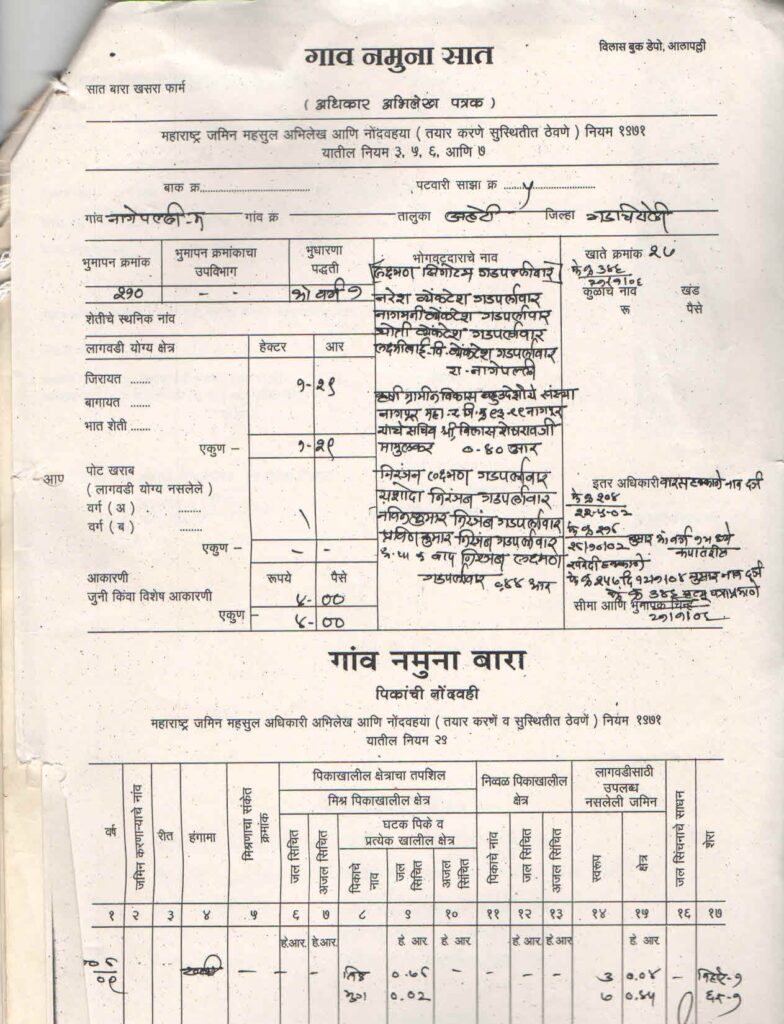 गाव नमुना सात
विलास बुक डेपो, आलापल्ली
सात बारा खसरा फार्म
( अधिकार अभिलेख पत्रक )
महाराष्ट्र जमिन महसुल अभिलेख आणि नोंदवहया ( तयार करणे सुस्थितीत ठेवणे ) नियम १९७१
यातील नियम ३, ५, ६, आणि ७
बाक क्र............................... पटवारी साझा क्र .....५.....
गांव नागेपल्ली गांव क्र तालुका अहेरी जिल्हा गडचिरोली
भुमापन क्रमांक
भुमापन क्रमांकाचा उपविभाग
भुधारणा पद्धती
भोगवटदाराचे नाव
खाते क्रमांक २८
२१० - - भो वर्ग १
गडपल्लीवार
फे क्र ३४६
२७/१/०६
कुळाचे नाव खंड
रू पैसे
शेतीचे स्थनिक नांव
नरेश व्येंकटेश गडपर्लावार
नागमनी व्येंकटेश गडपर्लावार
ज्योती व्येंकटेश गडपर्लावार
लक्ष्मीबाई वि. व्येंकटेश गडपर्लावार
रा. नागेपल्ली
लागवडी योग्य क्षेत्र हेक्टर आर
जिरायत ...... १-२९
बागायत ......
भात शेती ......
एकुण – १-२९
कृषी ग्रामीण विकास बहुउद्देशीय संस्था
नागपूर
यांचे सचिव श्री विलास शेषरावजी
मामुलकर ०.४० आर
आण
पोट खराब
( लागवडी योग्य नसलेले )
वर्ग ( अ ) ........
वर्ग ( ब ) ........
एकुण – - -
निरंजन लक्ष्मण गडपर्लावार
यशोदा निरंजन गडपर्लावार
नविनकुमार निरंजन गडपर्लावार
प्रविणकुमार निरंजन गडपर्लावार
बाप निरंजन लक्ष्मण
गडपर्लावार ०.४४ आर
इतर अधिकारी वारस हक्काने नाव दर्ज
फे क्र २०४
२२-५-०२
२८/१०/०२
खरेदी हक्काने
फे क्र २५७ दि १२/१/०४ नुसार नाव दर्ज
फे क्र ३४६
सीमा आणि भुमापक चिन्हे
२७/१/०६
आकारणी रूपये पैसे
जुनी किंवा विशेष आकारणी ४-००
एकुण – ४-००
गांव नमुना बारा
पिकांची नोंदवही
महाराष्ट्र जमिन महसुल अधिकारी अभिलेख आणि नोंदवहया ( तयार करणें व सुस्थितीत ठेवणें ) नियम १९७१
यातील नियम २९
वर्ष
जमिन करणाऱ्याचे नांव
रीत
हंगामा
मिश्रणाचा संकेत क्रमांक
पिकाखालील क्षेत्राचा तपशिल
मिश्र पिकाखालील क्षेत्र
जल सिंचित
अजल सिंचित
घटक पिके व प्रत्येक खालील क्षेत्र
पिकाचे नाव
जल सिंचित
अजल सिंचित
निव्वळ पिकाखालील क्षेत्र
पिकाचे नांव
जल सिंचित
अजल सिंचित
लागवडीसाठी उपलब्ध नसलेली जमिन
स्वरूप
क्षेत्र
जल सिंचनाचे साधन
शेरा
१ २ ३ ४ ५ ६ ७ ८ ९ १० ११ १२ १३ १४ १५ १६ १७
हे.आर हे.आर हे. आर हे. आर हे.आर हे.आर हे. आर
- - - - ०.७६ - - - - 3 ०.०४ - विहिर-१
मुग ०.०२ ७ ०.४५